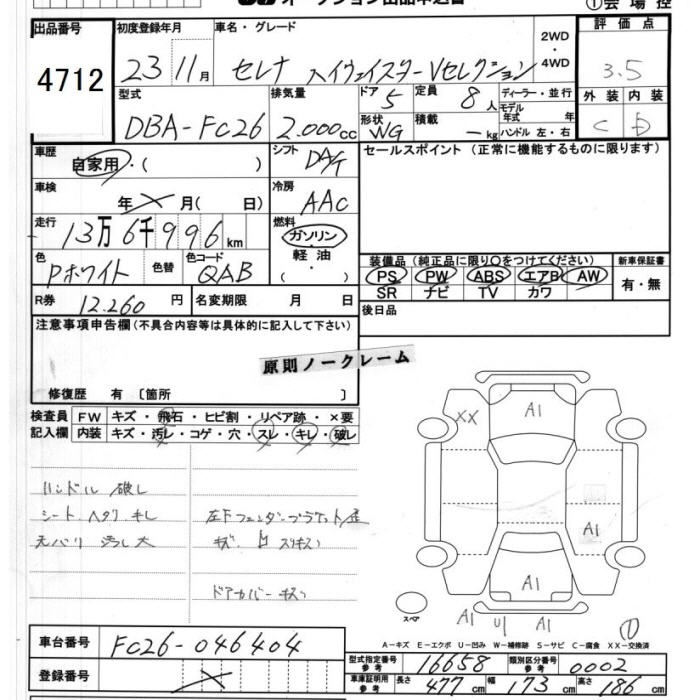 オークション出品申込書 ①会場控
出品番号 4712
初度登録年月 23 11月
車名・グレード セレナ ハイウェイスターVセレクション
2WD・4WD
評価点 3.5
型式 DBA-FC26
排気量 2.000cc
ドア 5
定員 8人
ディーラー・並行
モデル年式 年
形状 WG
積載 — kg
ハンドル 左・右
外装 C
内装 D
車歴 自家用・( )
シフト DA/T
セールスポイント (正常に機能するものに限ります)
車検 年 月( 日)
冷房 AAC
走行 13万6千996km
燃料 ガソリン・軽油・( )
色 Pホワイト
色替
色コード QAB
装備品 (純正品に限り○をつけてください)
PS PW ABS エアB AW
SR ナビ TV カワ
新車保証書 有・無
R券 12.260円
名変期限 月 日
後日品
注意事項申告欄 (不具合内容等は具体的に記入して下さい)
原則ノークレーム
修復歴 有 〔箇所 〕
検査員記入欄
FW キズ・飛石・ヒビ割・リペア跡・×要
内装 キズ・汚レ・コゲ・穴・スレ・キレ・破レ
ハンドル 破レ
シート ヘタリ キレ
天バリ 汚レ大
左Fフェンダーブラケット歪
ドアカバー キズ
XX A1
A1
A1
A1 U1 A1
スペア
A－キズ E－エクボ U－凹み W－補修跡 S－サビ C－腐食 XX－交換済
車台番号 FC26-046404
登録番号
型式指定番号 参考 16658
類別区分番号 参考 0002
車庫証明用 参考 長さ 477cm 幅 173cm 高さ 186cm